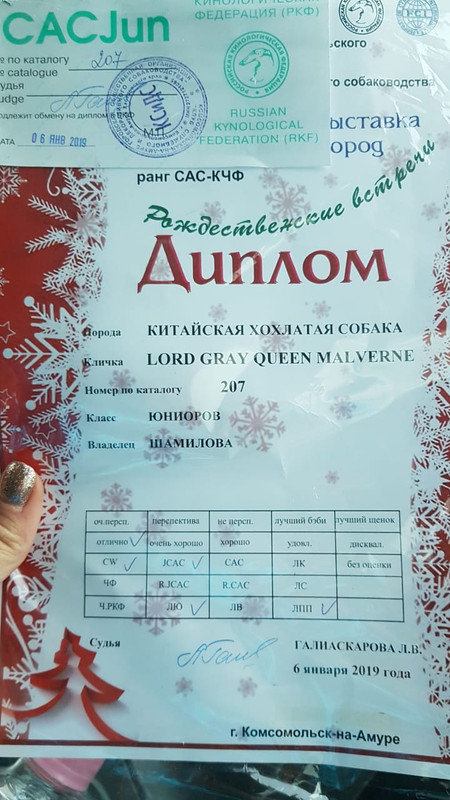 CACJun
КИНОЛОГИЧЕСКАЯ
ФЕДЕРАЦИЯ (РКФ)
№ по каталогу 207
№ catalogue
судья
judge
подлежит обмену на диплом в РКФ
ДАТА 06 ЯНВ 2019
М.П.
RUSSIAN
KYNOLOGICAL
FEDERATION (RKF)
о собаководства
ыставка
ород
ранг САС-КЧФ
Рождественские встречи
Диплом
Порода КИТАЙСКАЯ ХОХЛАТАЯ СОБАКА
Кличка LORD GRAY QUEEN MALVERNE
Номер по каталогу 207
Класс ЮНИОРОВ
Владелец ШАМИЛОВА
оч.персп. перспектива не персп. лучший бэби лучший щенок
отлично очень хорошо хорошо удовл. дисквал.
CW JCAC CAC ЛК без оценки
ЧФ R.JCAC R.CAC ЛС
Ч.РКФ ЛЮ ЛВ ЛПП
Судья ГАЛИАСКАРОВА Л.В.
6 января 2019 года
г. Комсомольск-на-Амуре